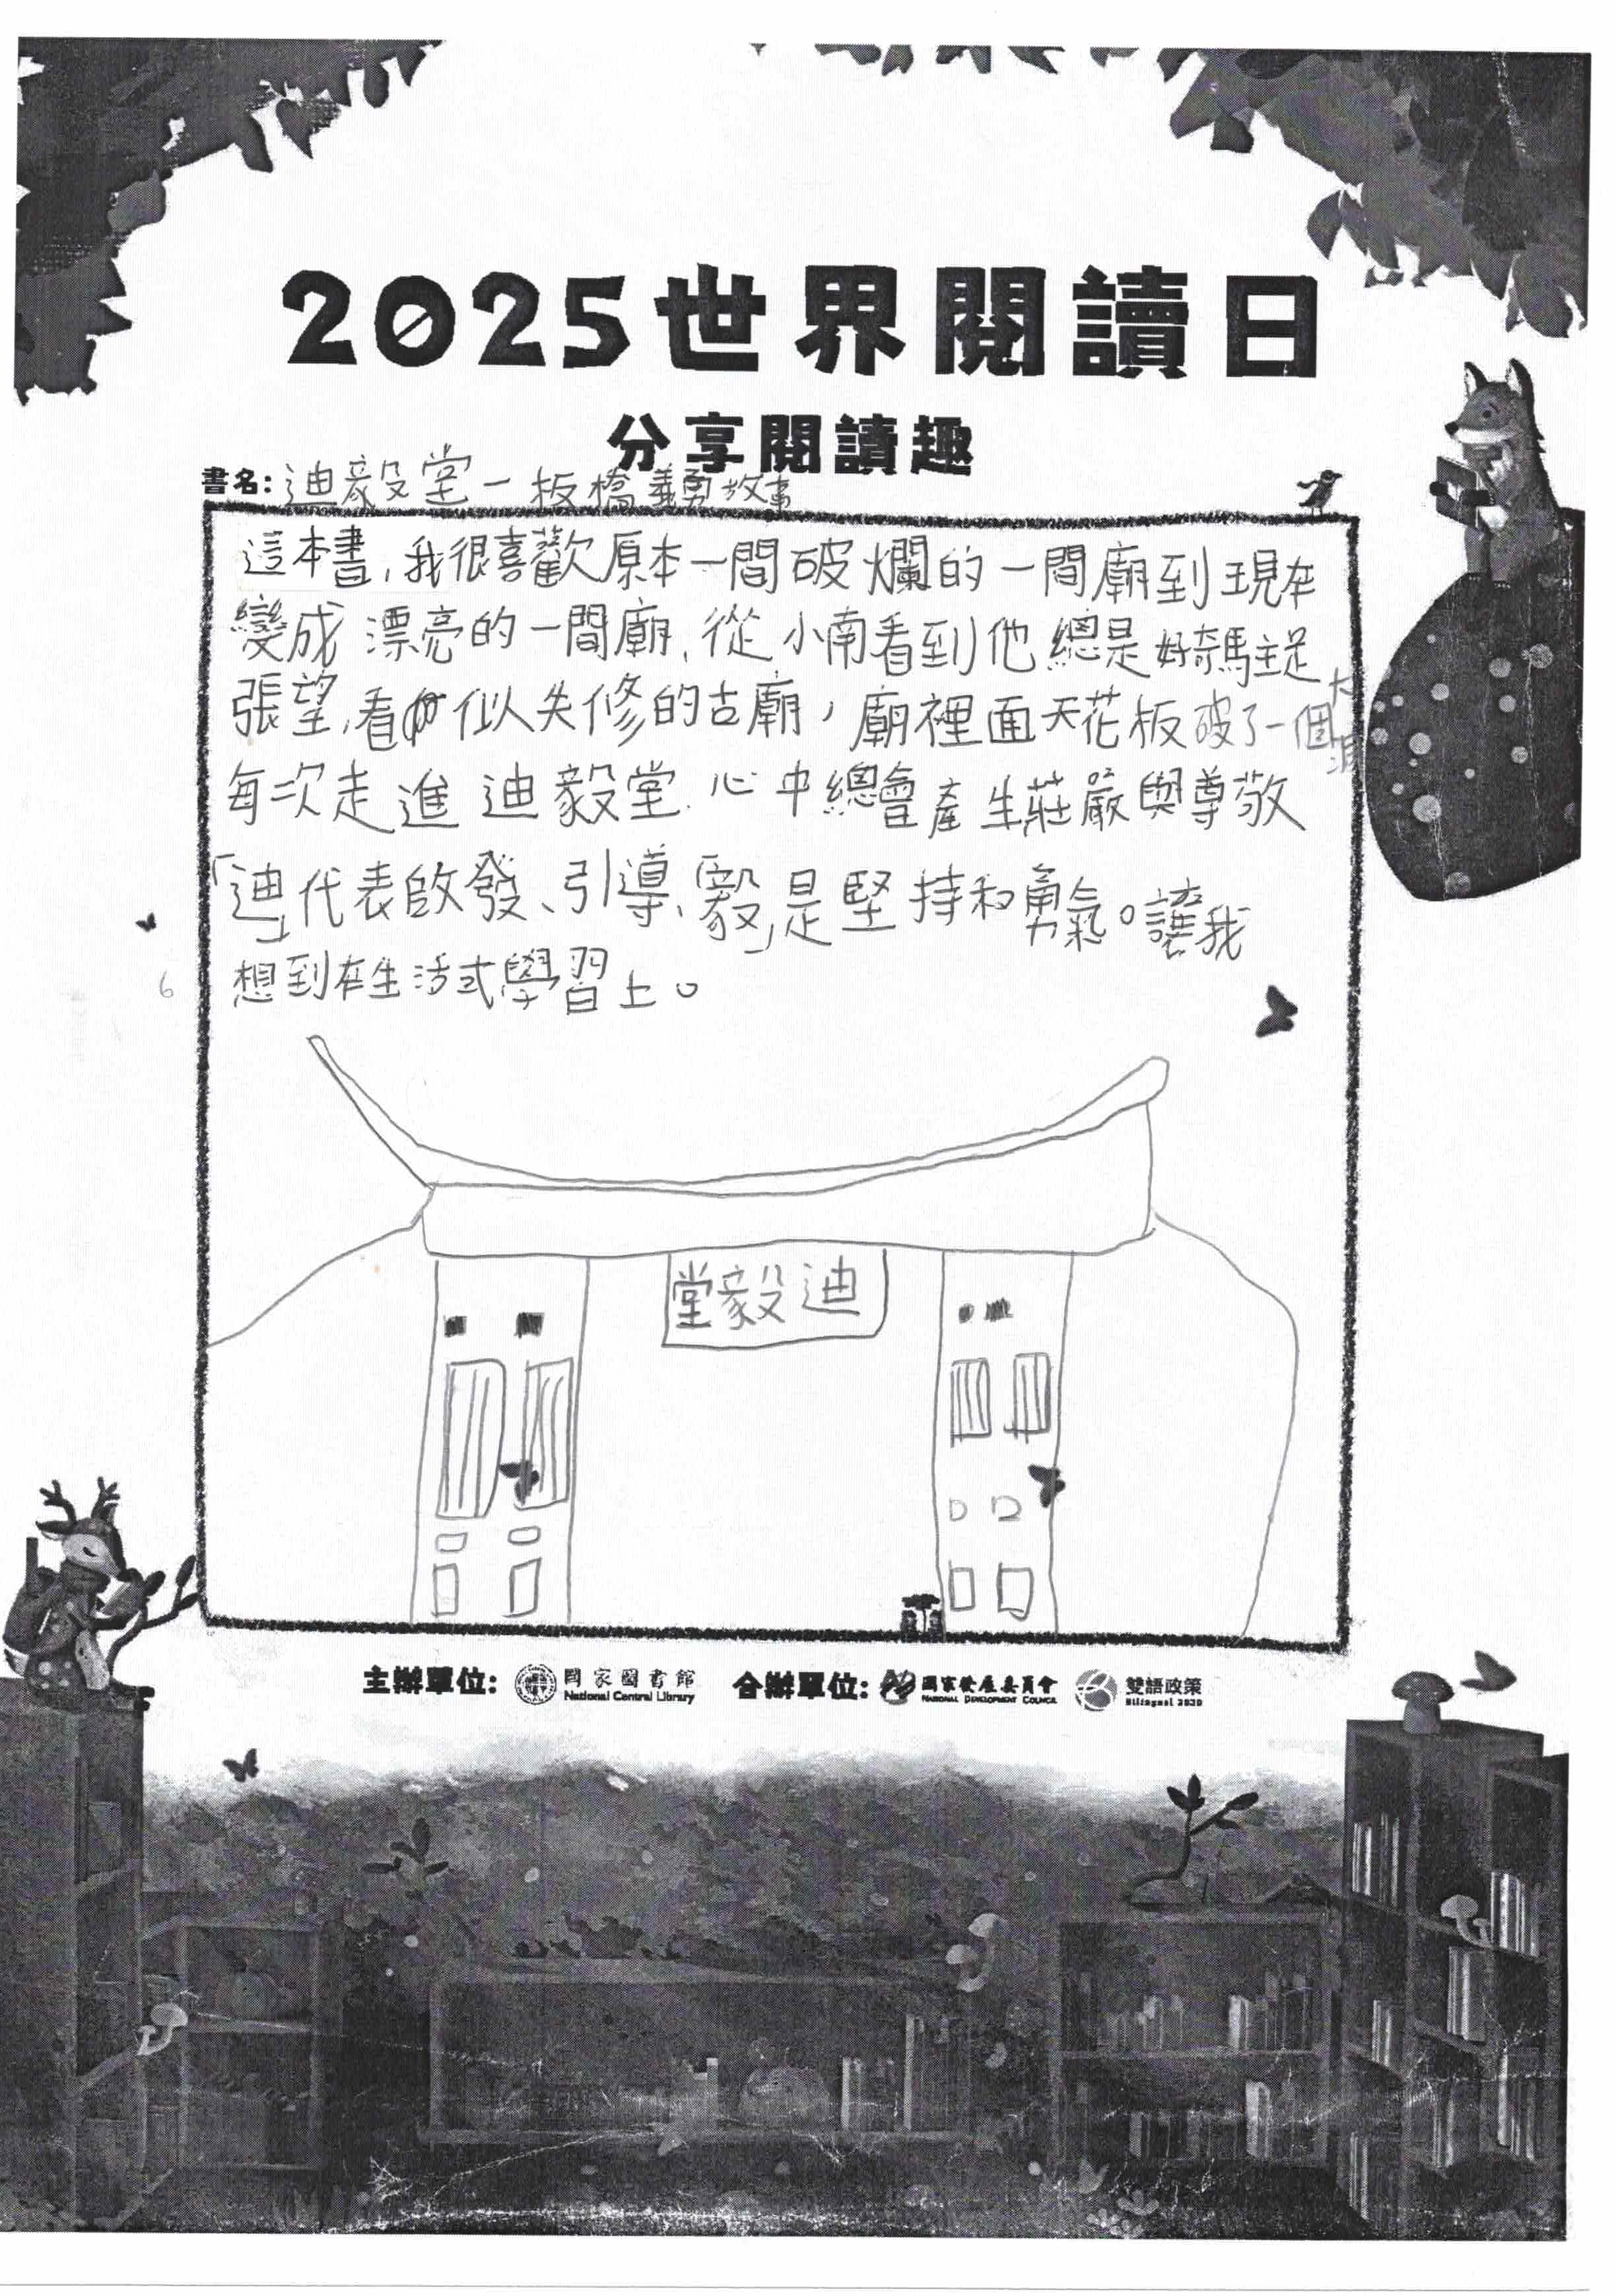 2025世界閱讀日
分享閱讀趣
書名:迪毅堂-板橋義勇故事
這本書,我很喜歡原本一間破爛的一間廟到現在
變成漂亮的一間廟,從小南看到他總是好奇駐足
張望,看似失修的古廟,廟裡面天花板破了一個大洞
每次走進迪毅堂.心中總會產生莊嚴與尊敬
「迪」代表啟發、引導、「毅」是堅持和勇氣。讓我
想到在生活式學習上。
6
堂毅迪
主辦單位: 國家圖書館 合辦單位: 國家發展委員會 雙語政策
National Central Library NATIONAL DEVELOPMENT COUNCIL Bilingual 2030